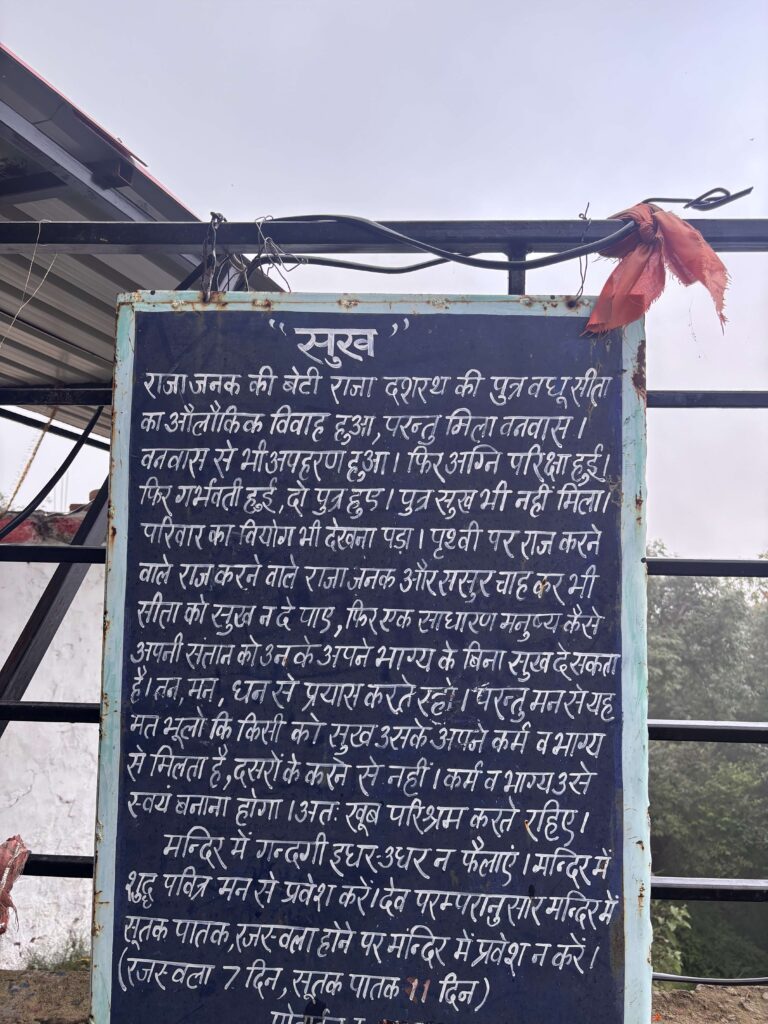 "सुख"
राजा जनक की बेटी राजा दशरथ की पुत्र वधू सीता
का औलौकिक विवाह हुआ, परन्तु मिला वनवास।
वनवास से भी अपहरण हुआ। फिर अग्नि परिक्षा हुई।
फिर गर्भवती हुई, दो पुत्र हुए। पुत्र सुख भी नहीं मिला।
परिवार का वियोग भी देखना पड़ा। पृथ्वी पर राज करने
वाले राज करने वाले राजा जनक और ससुर चाह कर भी
सीता को सुख न दे पाए, फिर एक साधारण मनुष्य कैसे
अपनी संतान को उन के अपने भाग्य के बिना सुख दे सकता
है। तन, मन, धन से प्रयास करते रहो। परन्तु मन से यह
मत भूलो कि किसी को सुख उसके अपने कर्म व भाग्य
से मिलता है, दसरों के करने से नहीं। कर्म व भाग्य उसे
स्वयं बनाना होगा। अतः खूब परिश्रम करते रहिए।
मन्दिर में गन्दगी इधर-उधर न फैलाएं। मन्दिर में
शुद्ध पवित्र मन से प्रवेश करें। देव परम्परानुसार मन्दिर में
सूतक पातक, रजस्वला होने पर मंन्दिर में प्रवेश न करें।
(रजस्वला 7 दिन, सूतक पातक 11 दिन)